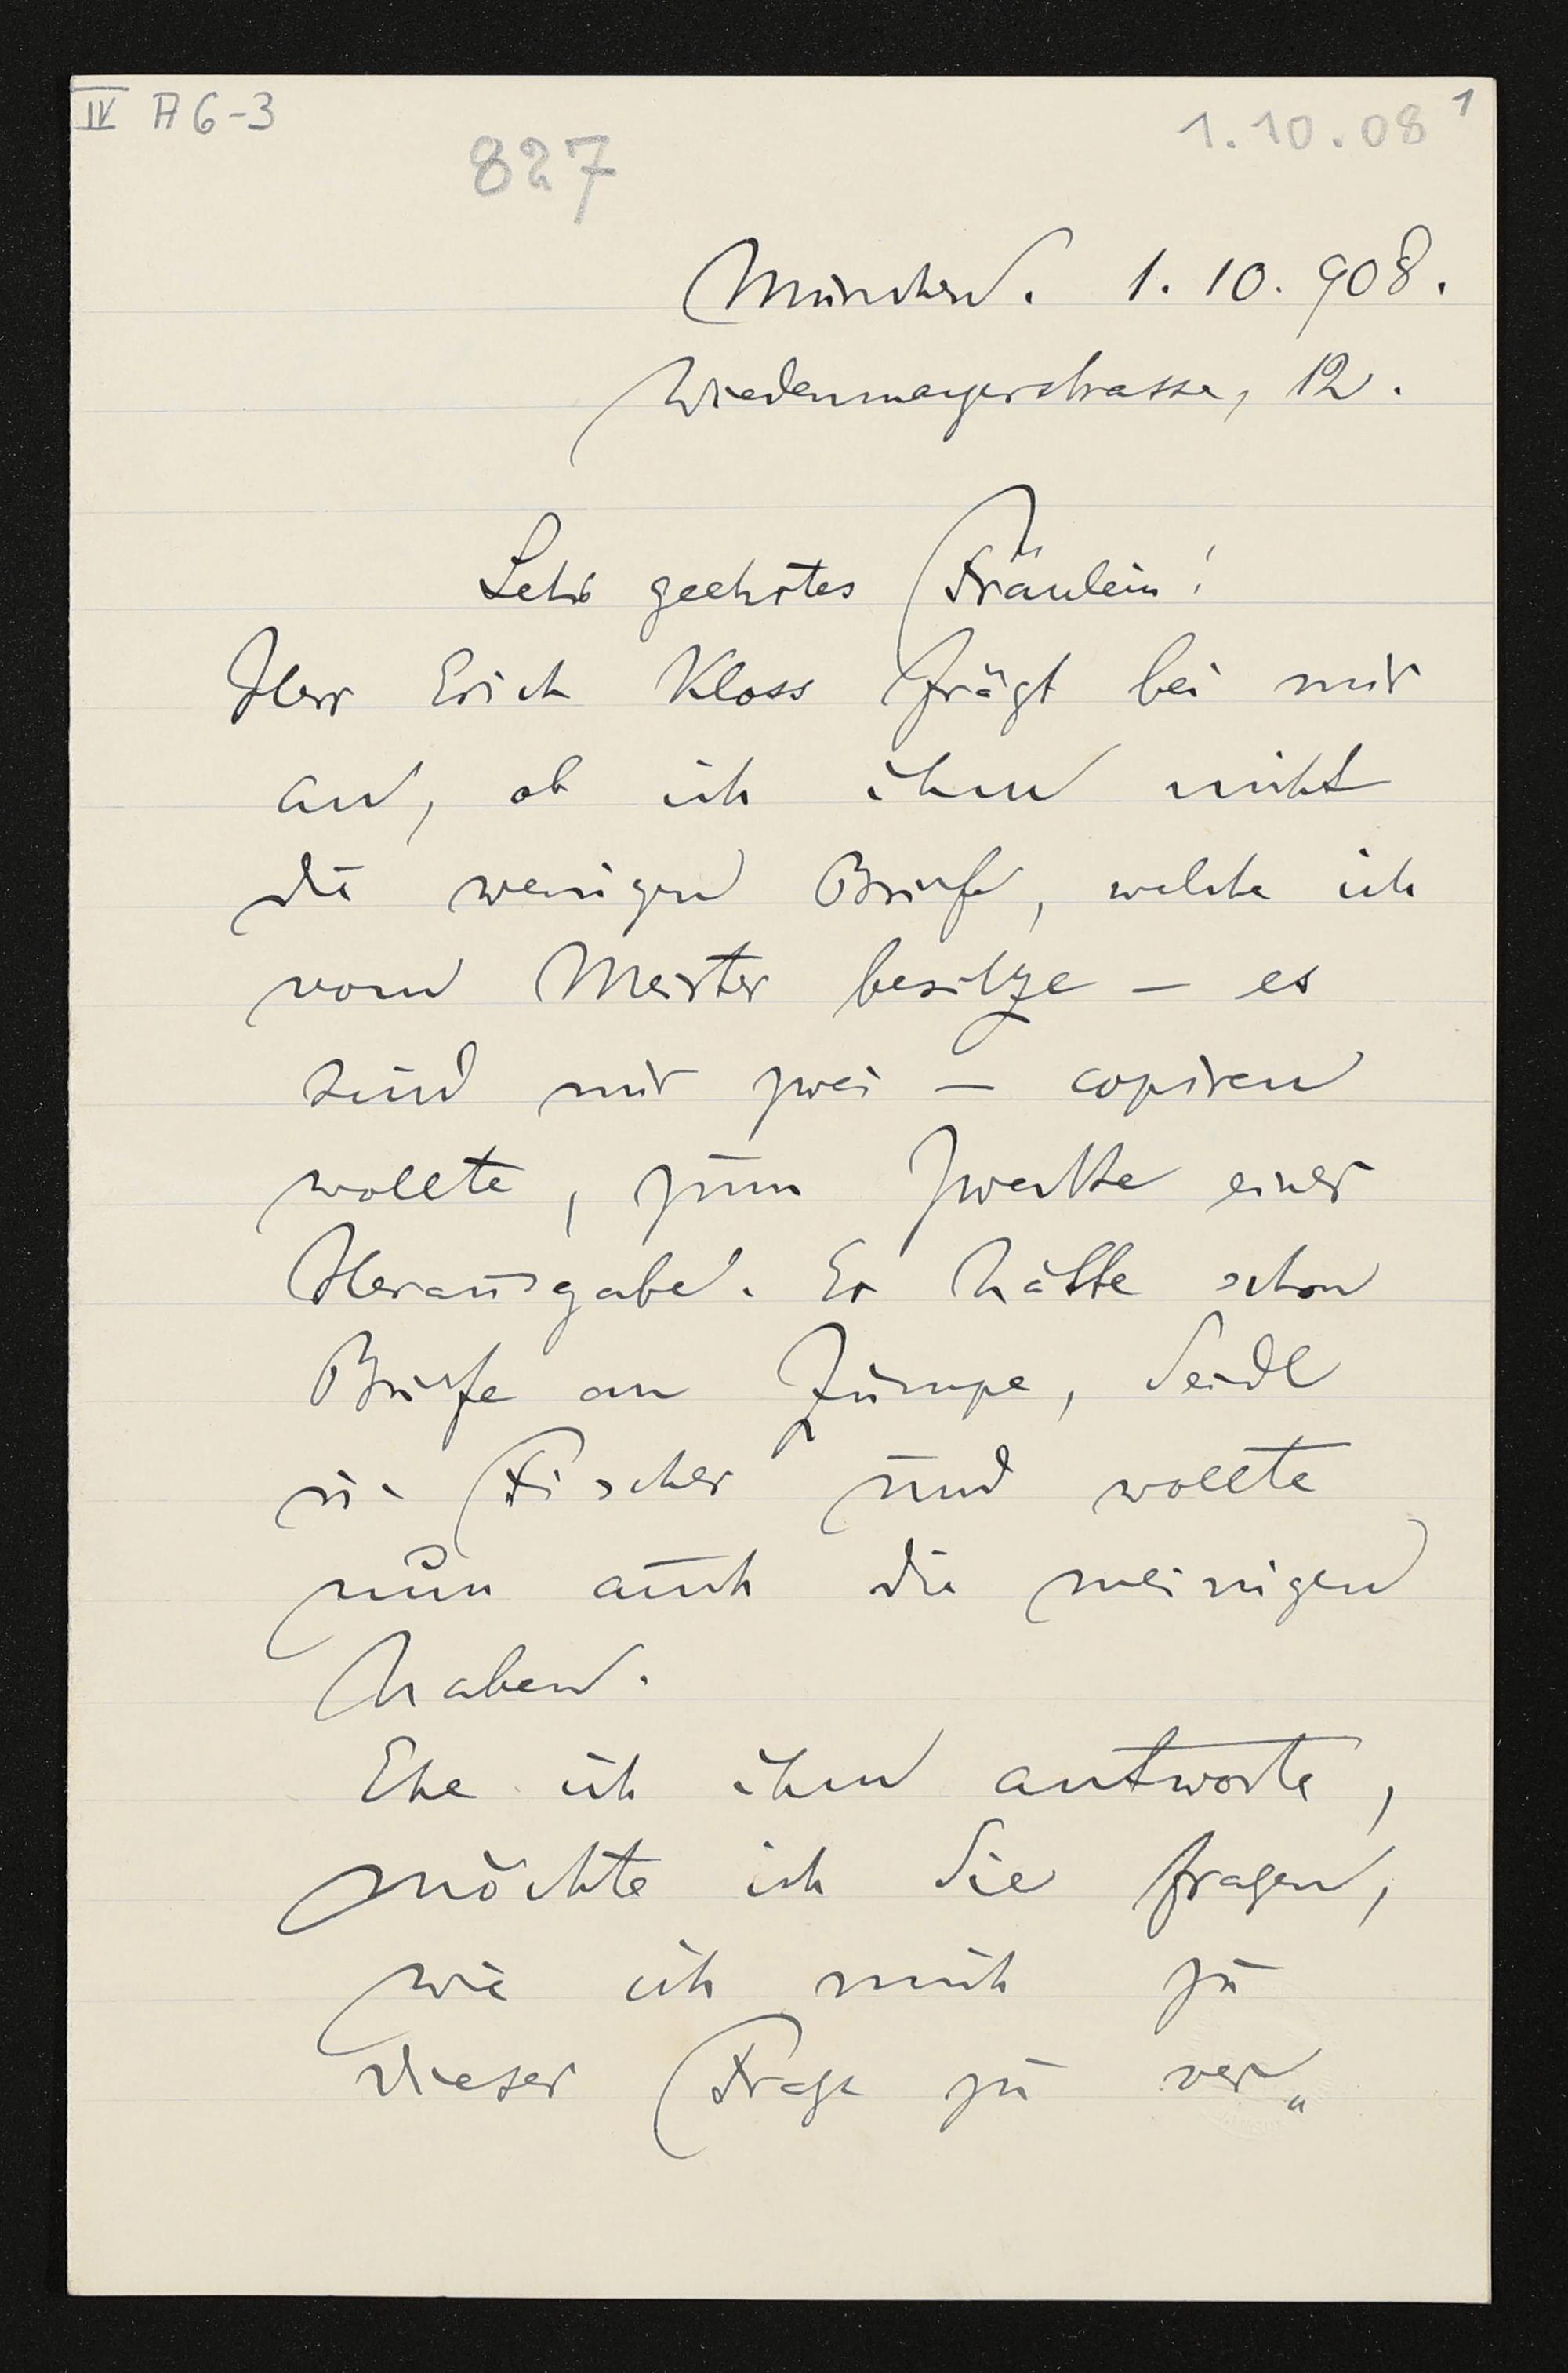 IV A 6-3
1.10.08 1
827
München. 1. 10. 908.
Wiedenmayerstrasse, 12.
Sehr geehrtes Fräulein!
Herr Erich Kloss frägt bei mir
an, ob ich ihm nicht
die wenigen Briefe, welche ich
vom Meister besitze – es
sind nur zwei – copiren
wollte, zum Zwecke einer
Herausgabe. Er hätte schon
Briefe an Zumpe, Seidl
u. Fischer und wollte
nun auch die meinigen
haben.
Ehe ich ihm antworte,
möchte ich Sie fragen,
wie ich mich zu
dieser Frage zu ver„